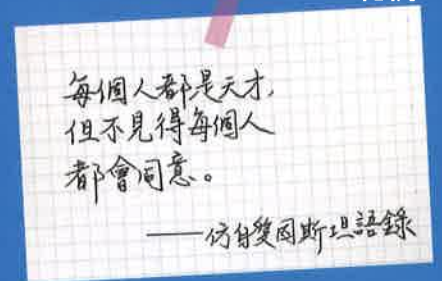 每個人都是天才,
但不見得每個人
都會同意。
——仿自愛因斯坦語錄